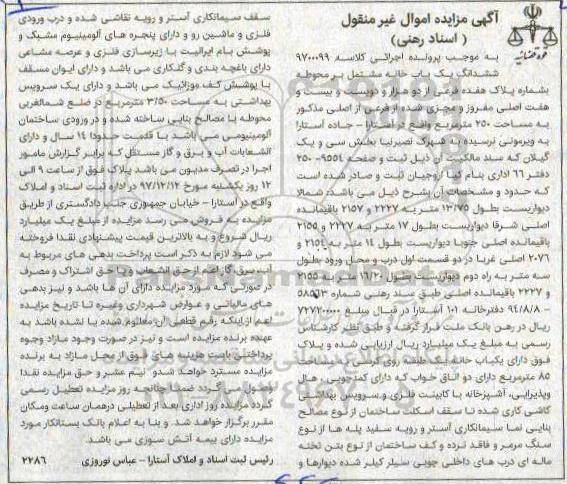 آگهی مزایده اموال غیر منقول
( اسناد رهنی )
قوه قضائیه
به موجب پرونده اجرائی کلاسه ۹۷۰۰۰۹۹
ششدانگ یک باب خانه مشتمل بر محوطه
بشماره پلاک هفده فرعی از دو هزار و دویست و بیست و
هفت اصلی مفروز و مجزی شده از فرعی از اصلی مذکور
به مساحت ۲۵۰ مترمربع واقع در آستارا – جاده آستارا
به ویرمونی نرسیده به شهرک نصیرنیا بخش سی و یک
گیلان که سند مالکیت آن ذیل ثبت و صفحه ۹۵۵۴- ۲۵۰
دفتر ۶۶ اداری بنام کیا آروجیان ثبت و صادر شده است
که حدود و مشخصات آن بشرح ذیل می باشد: شمالا
دیواریست بطول ۱۳/۷۵ متر به ۲۲۲۷ و ۲۱۵۷ باقیمانده
اصلی شرقا دیواریست بطول ۱۷ متر به ۲۲۲۷ و ۲۱۵۵
باقیمانده اصلی جنوبا دیواریست بطول ۱۴ متر به ۲۱۵۴ و
۲۰۷۶ اصلی غربا در دو قسمت اول درب و محل ورود بطول
سه متر به راه دوم دیواریست بطول ۱۶/۲۰ متر به ۲۱۵۵
و ۲۲۲۷ باقیمانده اصلی طبق سند رهنی شماره ۵۸۵۹۳
– ۹۴/۸/۸ دفترخانه ۱۰۱ آستارا در قبال مبلغ ۷۲۷۲۰۰۰۰۰
ریال در رهن بانک ملت قرار گرفته و طبق نظر کارشناس
رسمی به مبلغ یک میلیارد ریال ارزیابی شده و پلاک
فوق دارای یکباب خانه یک طبقه روی کرسی به مساحت
۸۵ مترمربع دارای دو اتاق خواب که دارای کمدچوبی، هال
وپذیرایی، آشپزخانه با کابینت فلزی و سرویس بهداشتی
کاشی کاری شده تا سقف اسکلت ساختمان از نوع مصالح
بنایی نما سیمانکاری آستر و رویه سفید پله ها از نوع
سنگ مرمر و فاقد نرده و کف ساختمان از نوع بتن تخته
ماله ای درب های داخلی چوبی سیلر کیلر شده دیوارها و
سقف سیمانکاری آستر و رویه نقاشی شده و درب ورودی
فلزی و ماشین رو و دارای پنجره های آلومینیوم مشبک و
پوشش بام ایرانیت با زیرسازی فلزی و عرصه مشاعی
دارای باغچه بندی و گلکاری می باشد و دارای ایوان مسقف
با پوشش کف موزائیک می باشد و دارای یک سرویس
بهداشتی به مساحت ۳/۵۰ مترمربع در ضلع شمالغربی
محوطه با مصالح بنایی ساخته شده و در ورودی ساختمان
آلومینیومی می باشد با قدمت حدودا ۱۴ سال و دارای
انشعابات آب و برق و گاز مستقل که برابر گزارش مامور
اجرا در تصرف مدیون می باشد پلاک فوق از ساعت ۹ الی
۱۲ روز یکشنبه مورخ ۹۷/۱۲/۱۲ در اداره ثبت اسناد و املاک
واقع در آستارا – خیابان جمهوری جنب دادگستری از طریق
مزایده به فروش می رسد مزایده از مبلغ یک میلیارد
ریال شروع و به بالاترین قیمت پیشنهادی نقدا فروخته
می شود لازم به ذکر است پرداخت بدهی های مربوط به
آب، برق، گاز اعم از حق انشعاب و یا حق اشتراک و مصرف
در صورتی که مورد مزایده دارای آن ها باشد و نیز بدهی
های مالیاتی و عوارض شهرداری وغیره تا تاریخ مزایده
اعم از اینکه رقم قطعی آن معلوم شده یا نشده باشد به
عهده برنده مزایده است و نیز در صورت وجود مازاد وجوه
پرداختی بابت هزینه های فوق از محل مازاد به برنده
مزایده مسترد خواهد شد و نیم عشر و حق مزایده نقدا
وصول می گردد ضمنا چنانچه روز مزایده تعطیل رسمی
گردد مزایده روز اداری بعد از تعطیلی درهمان ساعت ومکان
مقرر برگزار خواهد شد. و بنا به اعلام بانک بستانکار مورد
مزایده دارای بیمه آتش سوزی می باشد.
رئیس ثبت اسناد و املاک آستارا – عباس نوروزی ۲۲۸۶